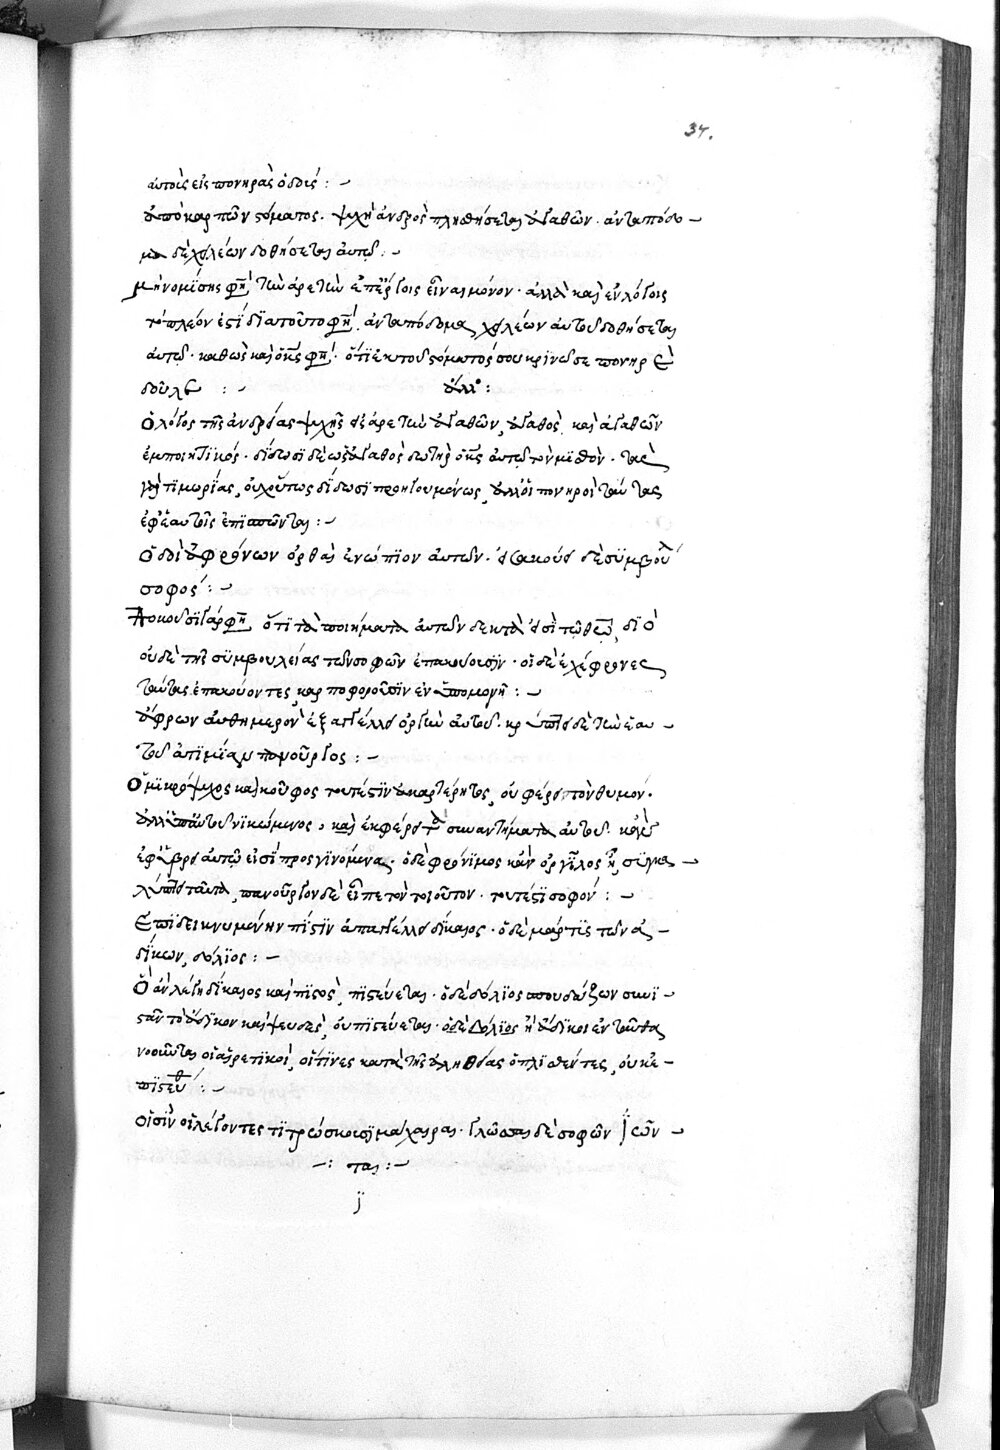 34.
αὐτοὶς εἰς πονηρὰς ὁδούς : ~
ἀπὸ καρπῶν στόματος· ψυχὴ ἀνδρὸς πλησθήσεται ἀγαθῶν· ἀνταπόδο —
μα δὲ χειλέων δοθήσεται αὐτῷ : ~
Μὴ νομίσης φησὶ τὴν ἀρετὴν ἐπ' ἔργοις εἶναι μόνον· ἀλλὰ καὶ ἐν λόγοις
τὸ πλεόν ἐστί διατοῦτο φησὶ, ἀνταπόδομα χειλέων αὐτοῦ δοθήσεται
αὐτῷ· καθὼς καὶ ὁ κς φησὶ· ὅτι ἐκ τοῦ στόματός σου κρινῶ σε πονηρὲ
δοῦλε : ~ ἄλλο :
Ὁ λόγος τῆς ἀνδρείας ψυχῆς ἐξ ἀρετῶν ἀγαθῶν, ἀγαθὸς καὶ ἀγαθῶν
ἐμποιητικός· δίδωσι δὲ ὡς ἀγαθὸς δωτὴρ ὁ κς αὐτῷ τὸν μισθόν· τὰς
γὰρ τιμωρίας, οὐχ οὕτως δίδωσι προηγουμένως, ἀλλ' οἱ πονηροὶ ταύτας
ἐφ' ἑαυτοῖς ἐπισπῶνται : ~
Ὁδοὶ ἀφρόνων ὀρθαὶ ἐνώπιον αὐτῶν· εἰσακούει δὲ συμβουλί
σοφός : ~
Ἀκούουσι γάρ φησιν ὅτι τὰ ποιήματα αὐτῶν δεκτὰ εἰσὶ τῷ θεῷ, διὸ
οὐδὲ τῆς συμβουλείας τῶν σοφῶν ἐπακούουσιν· οἱ δὲ ἐχέφρονες
ταύτας ἐπακούοντες, καρποφοροῦσιν ἐν ὑπομονῇ : ~
Ἄφρων αὐθημερὸν ἐξαγγέλλει ὀργὴν αὐτοῦ· κρύπτει δὲ τὴν ἑαυ —
τοῦ ἀτιμίαν πανοῦργος : ~
Ὁ μικρόψυχος καὶ κοῦφος τουτέστιν ἀκαρτέρητος, οὐ φέρει τὸν θυμόν·
ἀλλ' ὑπ' αὐτοῦ νικώμενος, καὶ ἐκφέρει τὰ συναντήματα αὐτοῦ· κἂν
ἐφ' ὕβρει αὐτῷ εἰσὶ προσγινόμενα· ὁ δὲ φρόνιμος κἂν ὀργίλος ᾖ, συγκα —
λύπτει ταῦτα, πανοῦργον δὲ εἶπε τὸν τοιοῦτον· τουτέστι σοφόν : ~
Ἐπιδεικνυμένην πίστιν ἀπαγγέλλει δίκαιος· ὁ δὲ μάρτις τῶν ἀ —
δίκων, δόλιος : ~
Ὃ ἂν λέγη δίκαιος καὶ πιστὸς, πιστεύεται· ὁ δὲ δόλιος σπουδάζων συνι —
στᾶν τὸ ἄδικον καὶ ψευδὲς, οὐ πιστεύεται· ὁ δὲ δόλιος ἢ ἄδικοι ἐνταῦθα
νοοῦνται οἱ αἱρετικοὶ, οἵτινες κατὰ τῆς ἀληθείας ὁπλισθέντες, οὐκ ἐ —
πιστεύθησαν : ~
Οἱσὶν οἳ λέγοντες τιτρώσκουσι μαχαίραις· γλῶσσαι δὲ σοφῶν ἰῶν —
— : ται : ~